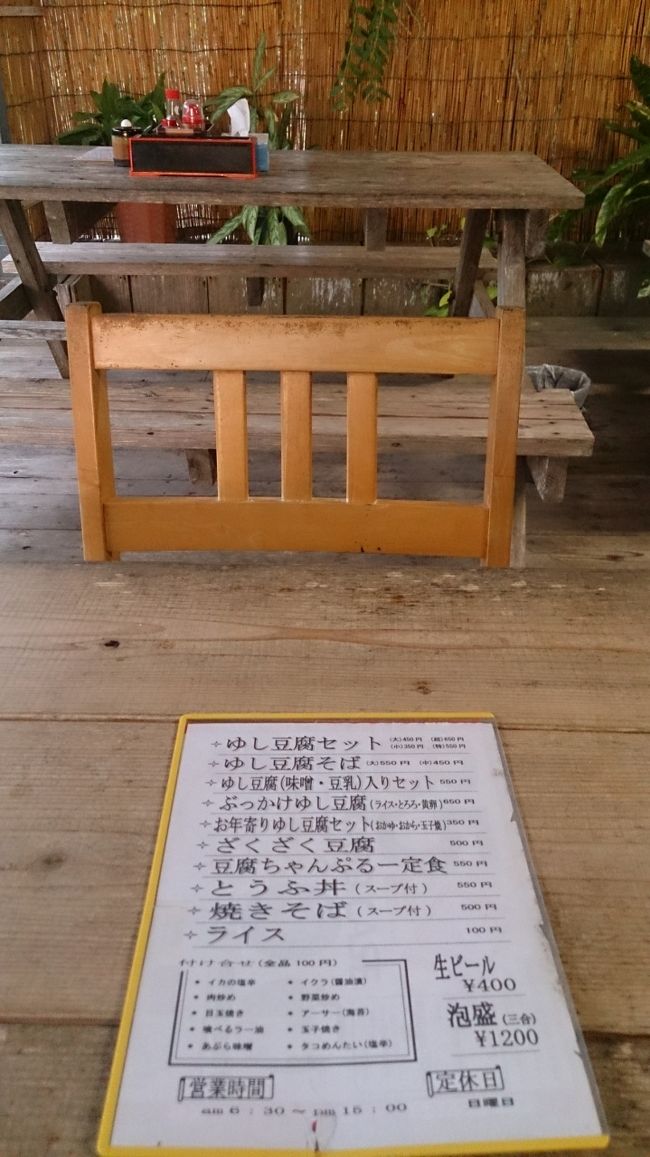 ゆし豆腐セット (大)450円 (超)650円
(小)350円 (特)550円
ゆし豆腐そば (大)550円 (中)450円
ゆし豆腐(味噌・豆乳)入りセット 550円
ぶっかけゆし豆腐(ライス・とろろ・黄卵)650円
お年寄りゆし豆腐セット(おかゆ・おから・玉子焼)350円
ざくざく豆腐 500円
豆腐ちゃんぷるー定食 550円
とうふ丼(スープ付) 550円
焼きそば(スープ付) 500円
ライス 100円
付け合せ(全品100円)
イカの塩辛
肉炒め
目玉焼き
喰べるラー油
あぶら味噌
イクラ(醤油漬)
野菜炒め
アーサー(海苔)
玉子焼き
タコめんたい(塩辛)
生ビール
¥400
泡盛(三合)
¥1200
営業時間
am6:30~pm15:00
定休日
日曜日